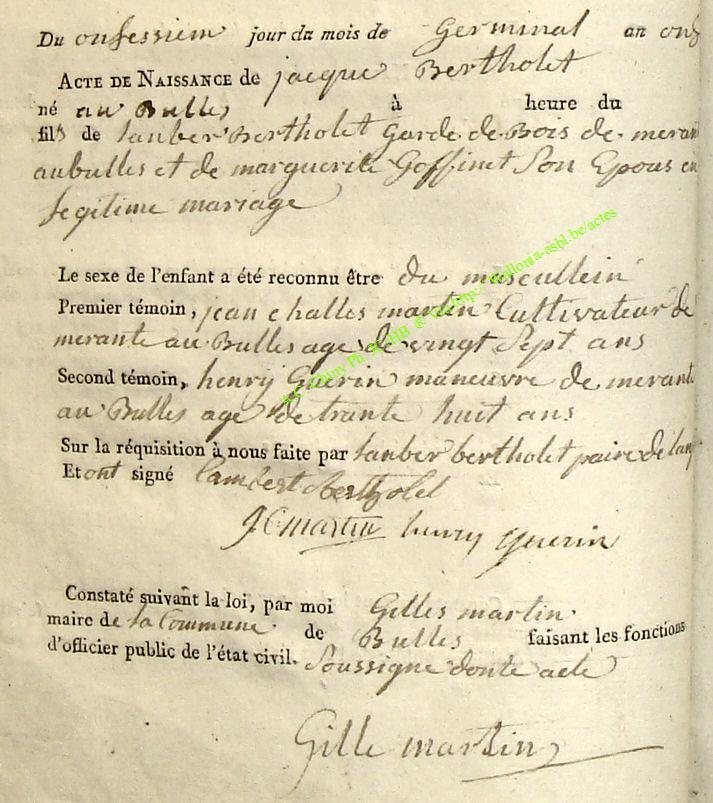 Du onsessiem jour du mois de Germinal an onz
ACTE DE NAISSANCE de jacque Bertholet
né au Bulles à heure du
fils de lanber Bertholet Garde de Bois de meran
aubulles et de marguerite Goffinet Son Epous en
legitime mariage
Le sexe de l'enfant a été reconnu être du mascullein
Premier témoin, jean challes martin Cultivateur de
merante au Bulles age de vingt Sept ans
Second témoin, henry Guerin maneuvre de merante
au Bulles age de trante huit ans
Sur la réquisition à nous faite par lanber bertholet paire de lanf
Et ont signé lambert bertholet
JC martin henry guerin
Constaté suivant la loi, par moi Gilles martin
maire de la Commune de Bulles faisant les fonctions
d'officier public de l'état civil. Soussigne donte acte
Gille martin